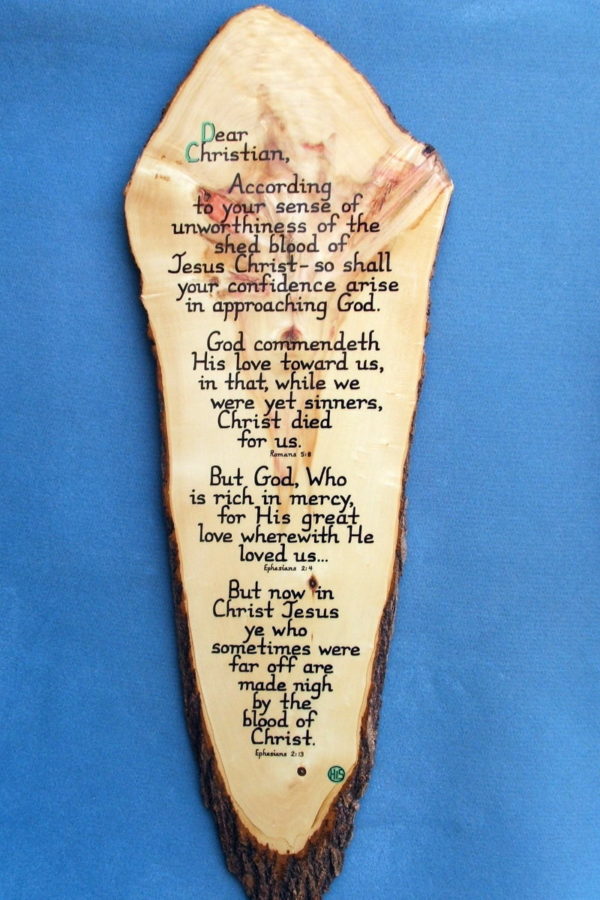 Dear
Christian,
According
to your sense of
unworthiness of the
shed blood of
Jesus Christ- so shall
your confidence arise
in approaching God.
God commendeth
His love toward us,
in that, while we
were yet sinners,
Christ died
for us.
Romans 5:8
But God, Who
is rich in mercy,
for His great
love wherewith He
loved us...
Ephesians 2:4
But now in
Christ Jesus
ye who
sometimes were
far off are
made nigh
by the
blood of
Christ.
Ephesians 2:13
HIS